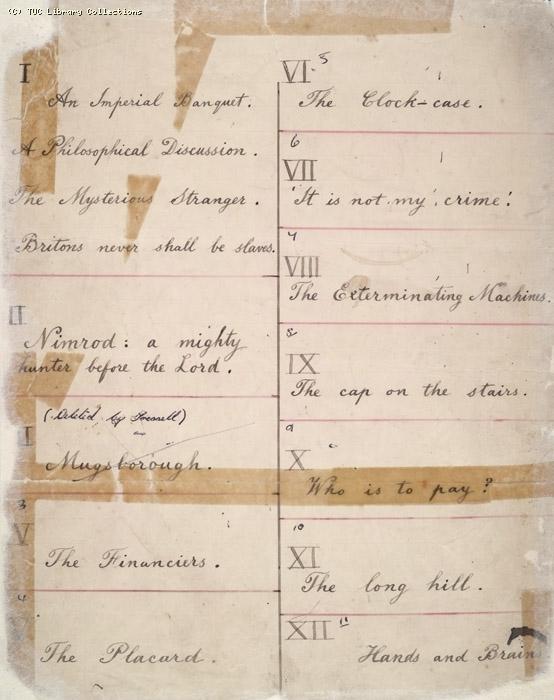 (C) TUC Library Collections
I
An Imperial Banquet.
A Philosophical Discussion.
The Mysterious Stranger.
Britons never shall be slaves.
II
Nimrod: a mighty
hunter before the Lord.
(Deleted by Tressell)
I
Mugsborough.
3
V
The Financiers.
4
The Placard.
VI 5
The Clock-case.
6
VII
'It is not my crime'.
7
VIII
The Exterminating Machines.
8
IX
The cap on the stairs.
9
X
Who is to pay?
10
XI
The long hill.
XII 11
Hands and Brains